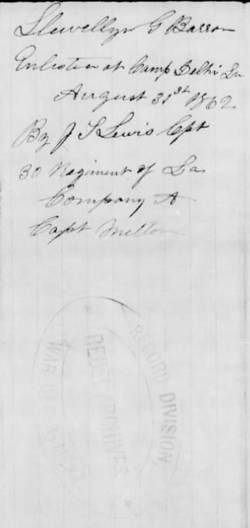 Llewellyn G Barron
Enlisted at Camp Delhi La
August 31st 1862
By J S Lewis Cpt
30 Regiment of La
Company A
Capt Milton
RECORD DIVISION
REBEL ARCHIVES
WAR DE